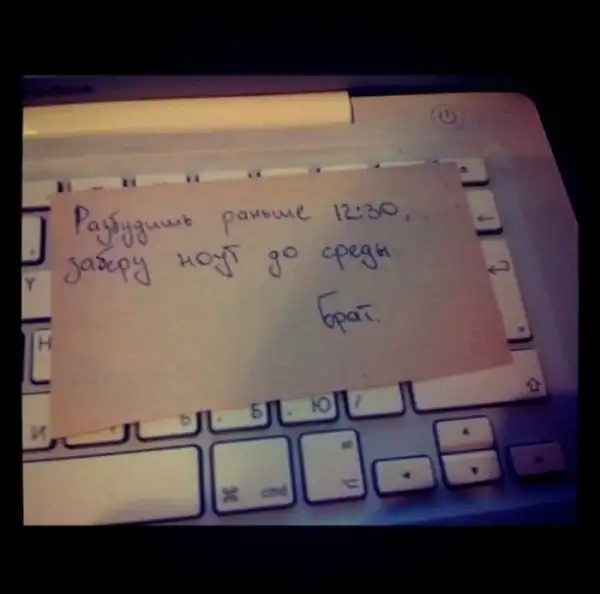 Разбудишь раньше 12:30,
заберу ноут до среды
Брат.
У
Н
И
Ь
Б
Ю
/
⌘ cmd
⌥